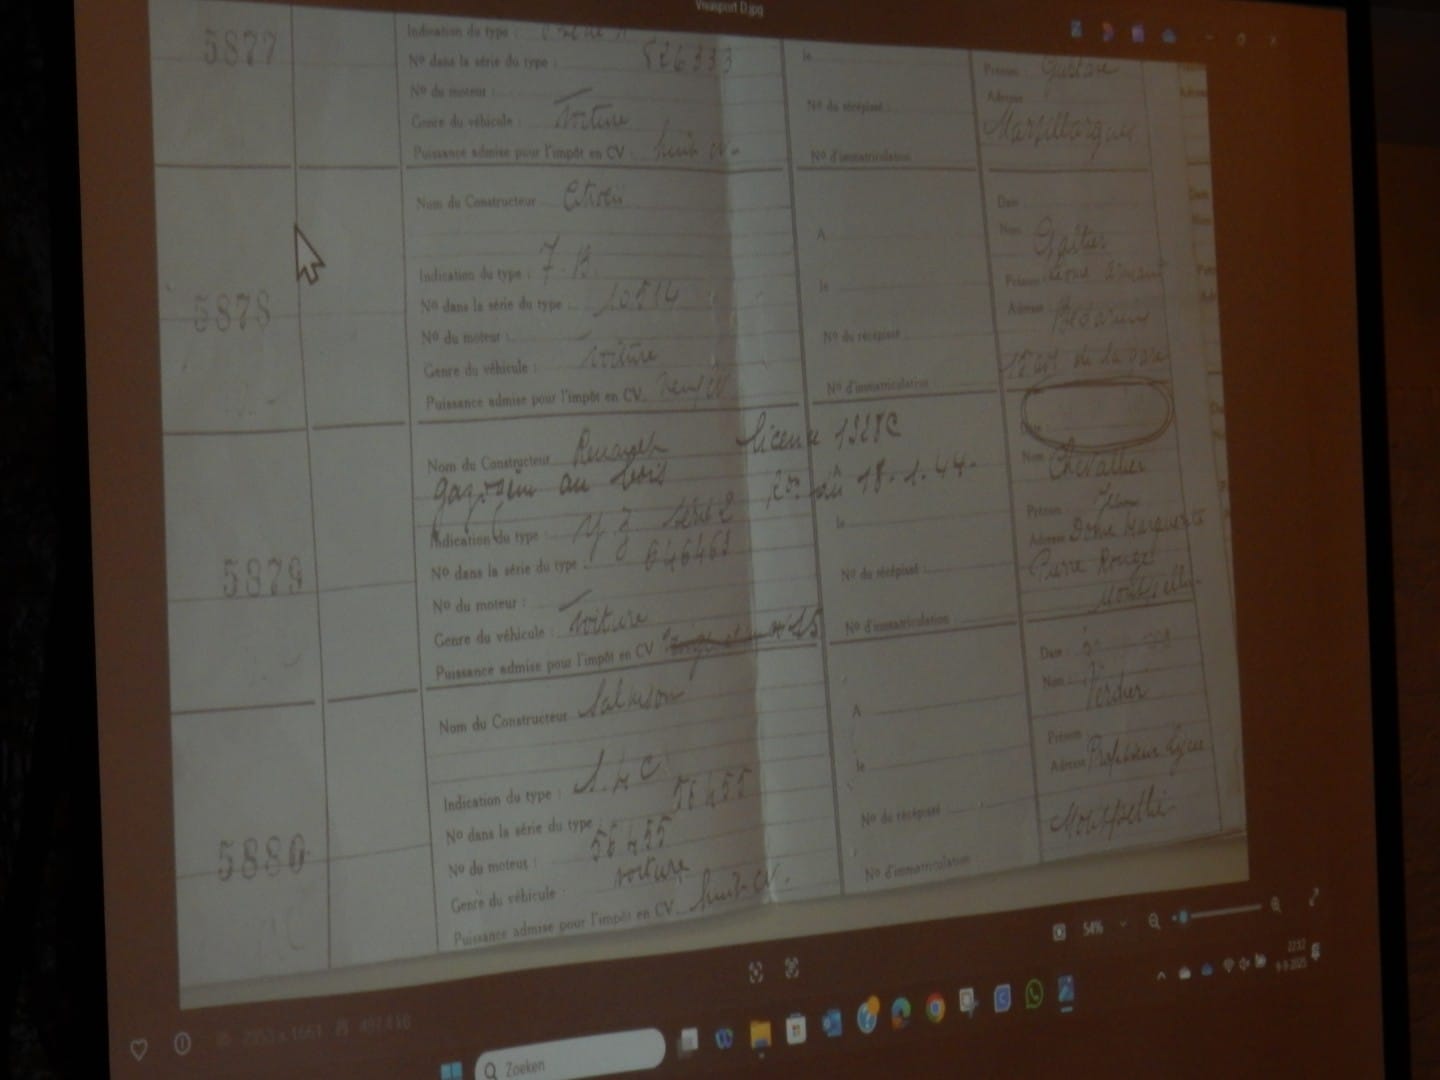 Visasport D.jpg
5877
Indication du type :
Nº dans la série du type : 526333
Nº du moteur :
Genre du véhicule : Voiture
Puissance admise pour l'impôt en CV huit CV.
le
Nº du récépissé :
Nº d'immatriculation
Prénom Gustave
Adresse
Marsillargues
5878
Nom du Constructeur Citroën
Indication du type : 7-B
Nº dans la série du type : 10514
Nº du moteur :
Genre du véhicule : Voiture
Puissance admise pour l'impôt en CV neuf CV
A
le
Nº du récépissé :
Nº d'immatriculation
Date
Nom Galtier
Prénom
Adresse Bédarieux
de la gare
5879
Nom du Constructeur Renault licence 1328C
gazogène au bois du 18.1.44.
Indication du type : série 2
Nº dans la série du type : 646463
Nº du moteur :
Genre du véhicule : Voiture
Puissance admise pour l'impôt en CV 15
A
le
Nº du récépissé :
Nº d'immatriculation
Date :
Nom Chevallier
Prénom Jean
Adresse Dome Marguerite
Pierre Rouge
Montpellier
5880
Nom du Constructeur Salmson
Indication du type : S.4.C
Nº dans la série du type 56455
Nº du moteur : 56455
Genre du véhicule voiture
Puissance admise pour l'impôt en CV huit CV.
A
le
Nº du récépissé
Nº d'immatriculation
Date :
Nom : Verdier
Prénom
Adresse Professeur Lycée
Montpellier
54%
Zoeken
22:12
9-9-2025